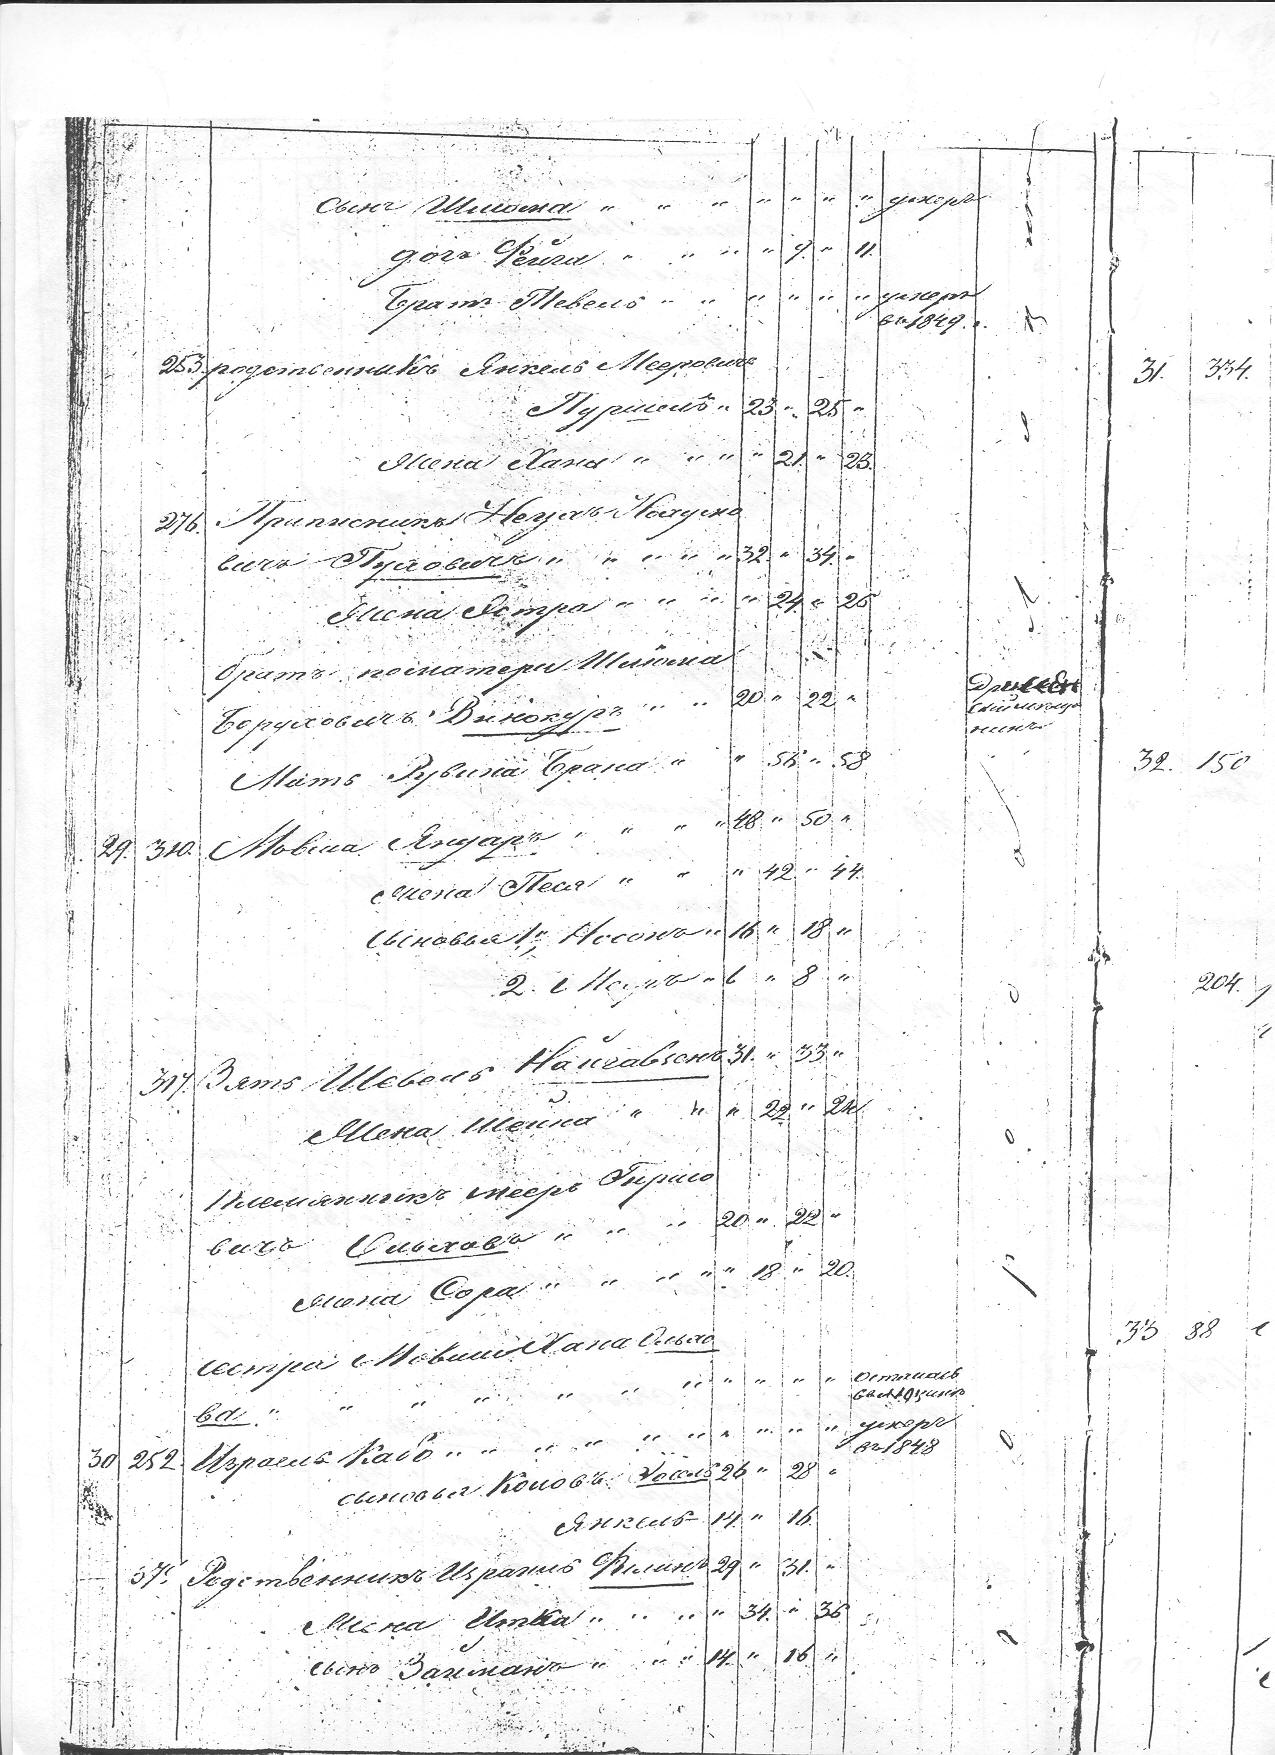 сынъ Шлиома " " " " " " " умеръ
дочь Фейга " " " " 9. " 11.
Братъ Тевель " " " " " " умеръ
въ 1849. г.
253. родственникъ Янкель Мееровичъ
31. 334.
Пуршель " 23 " 25 "
Жена Хана " " " " 21. " 23.
276. Приписникъ Нехуслъ
вичъ Пуховичъ " " " " " 32. " 34. "
Жена Эстра " " " " 24. " 26
братъ поматери Шлиома
Боруховичъ Винокуръ " " 20 " 22 "
Мать Рувина Брана " " 56 " 58
32. 150
29. 310. Мовша Яндаръ " " " " 48 " 50 "
жена Песя " " " 42 " 44.
сыновья 1й Носонъ " 16 " 18 "
2. " 6 " 8 "
204.
317. Зять Шевель 31. " 33 "
Жена Шейна " " " 22 " 24.
Племянникъ Мееръ Гиршо
вичъ Ольховъ " " " 20 " 22 "
жена Сора " " " " " 18 " 20.
сестра Мовши Хана Ольхо
33 88
ва " " " " " " " " " " " осталась
30 252 Израель Кабо " " " " " " " " " " умеръ
въ 1848
сыновья Коповъ Йосель 26 " 28 "
Янкель 14. " 16
37. Родственникъ Израиль Филинъ 29 " 31. "
Жена Итка " " " " 34. " 36
сынъ Залманъ " " " 14. " 16 "